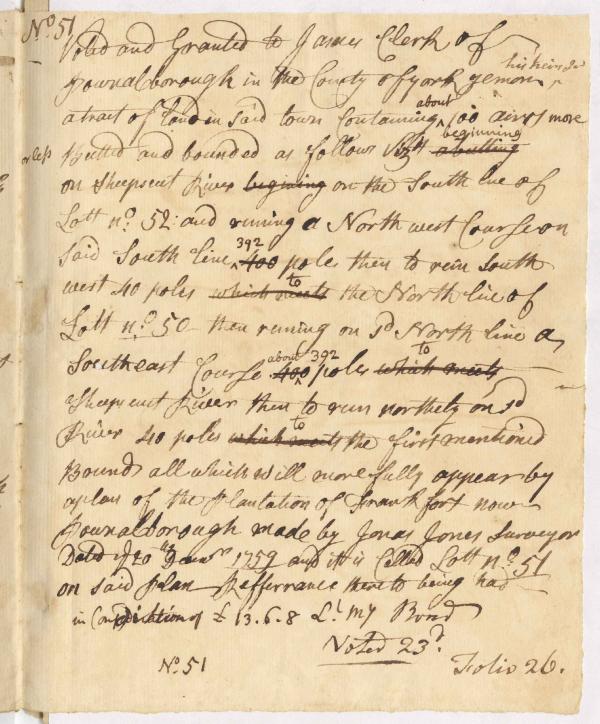 No 51
Voted and Granted to James Clerk of
Pownalborough in the County of york yemon his heirs &c
a tract of Land in Said town Containing about 100 airs more
or less Butted and bounded as follows Viz abutting beginning
on Sheepscut River begining on the South line of
Lott no. 52: and runing a North west Course on
Said South line 400 392 poles then to run South
west 40 poles which meets to the North line of
Lott no. 50 then runing on sd North line a
Southeast Course about 400 392 poles which meets to
Sheepscut River then to run northely on sd
River 40 poles which meets to the first mentioned
Bound all which will more fully appear by
a plan of the Plantation of Frankfort now
Pownalborough made by Jonas Jones Surveyor
Dated ye 20th 1759 and itt is Called Lott no. 51
on Said Plan Refferrance thereto being had
in Consideration of £ 13.6.8 my Bond
Voted 23d.
No. 51
Folio 26.